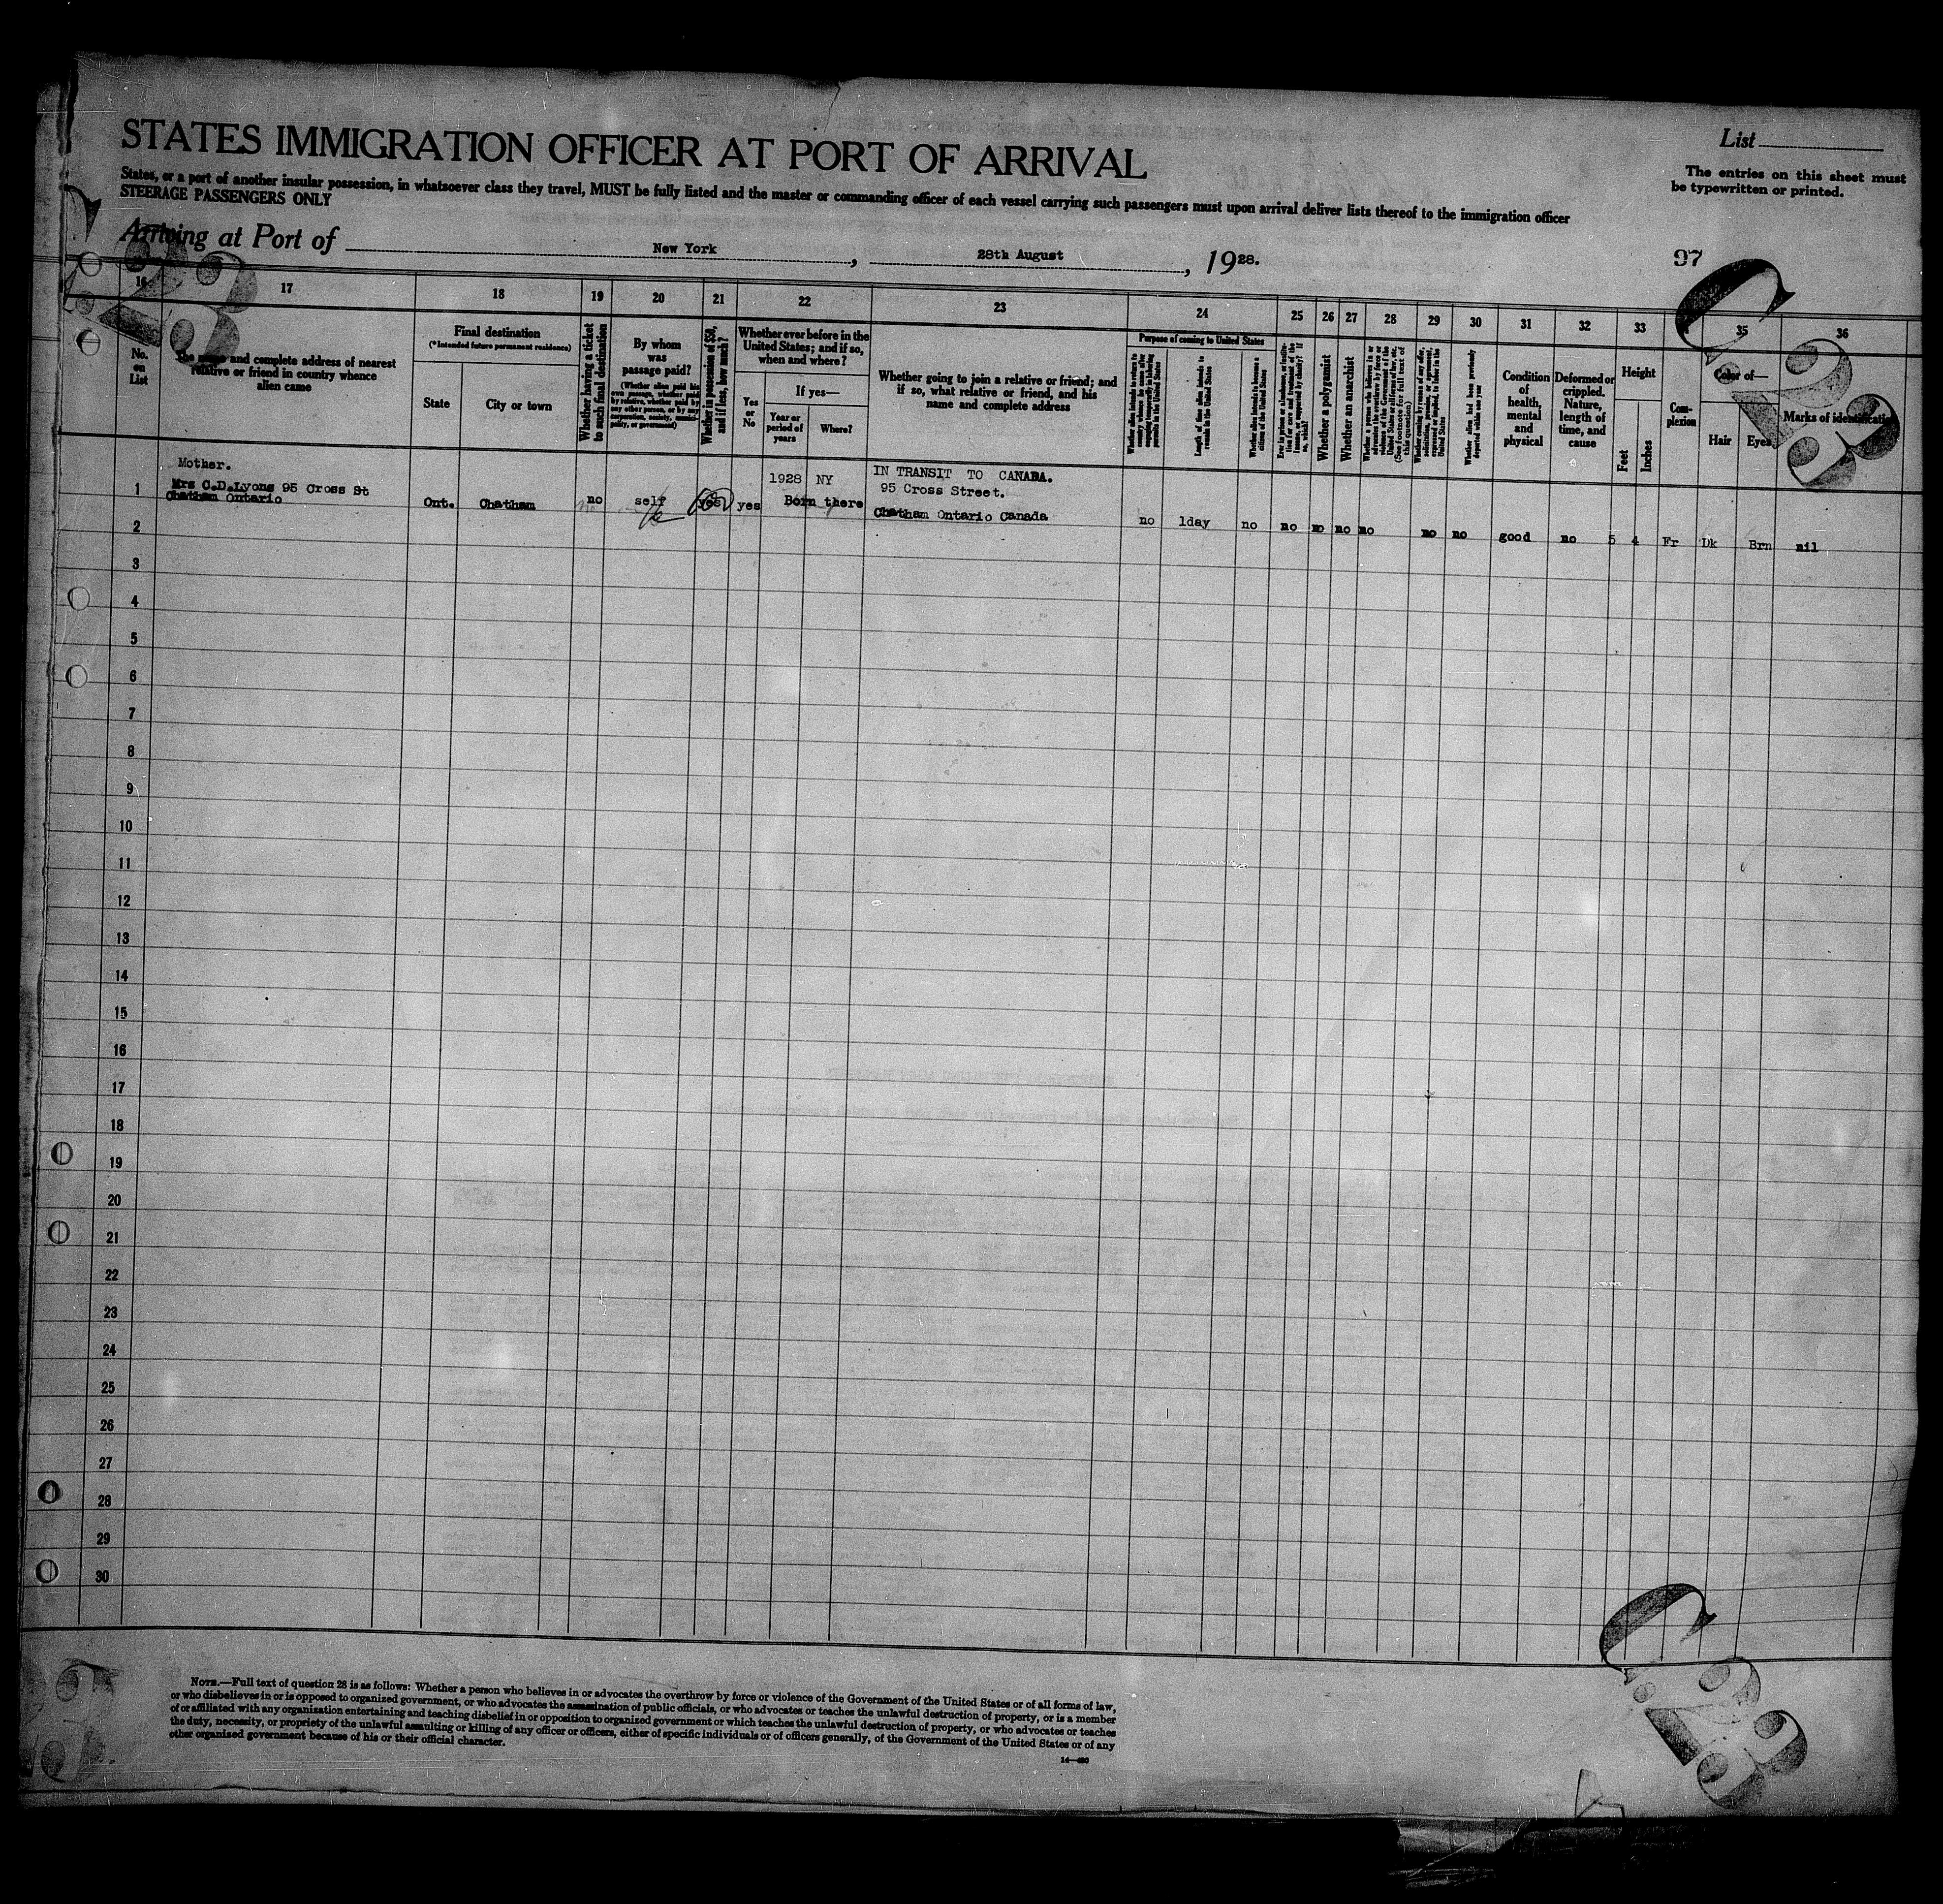 STATES IMMIGRATION OFFICER AT PORT OF ARRIVAL
List
The entries on this sheet must
be typewritten or printed.
States, or a port of another insular possession, in whatsoever class they travel, MUST be fully listed and the master or commanding officer of each vessel carrying such passengers must upon arrival deliver lists thereof to the immigration officer
STEERAGE PASSENGERS ONLY
Arriving at Port of New York, 28th August, 1928.
97
C.23
16 17 18 19 20 21 22 23 24 25 26 27 28 29 30 31 32 33 35 36
No.
on
List
The name and complete address of nearest
relative or friend in country whence
alien came
Final destination
(*Intended future permanent residence)
State
City or town
Whether having a ticket
to such final destination
By whom
was
passage paid?
(Whether alien paid his
own passage, whether paid
by relative, whether paid by
any other person, or by any
corporation, society, munici-
pality, or government)
Whether in possession of $50,
and if less, how much?
Whether ever before in the
United States; and if so,
when and where?
Yes
or
No
If yes—
Year or
period of
years
Where?
Whether going to join a relative or friend; and
if so, what relative or friend, and his
name and complete address
Purpose of coming to United States
Length of time alien intends to
remain in the United States
Whether alien intends to become a
citizen of the United States
Whether a polygamist
Whether an anarchist
(See footnote for full text of
this question)
Whether alien had been previously
deported within one year
Condition
of
health,
mental
and
physical
Deformed or
crippled.
Nature,
length of
time, and
cause
Height
Feet
Inches
Com-
plexion
Color of—
Hair
Eyes
Marks of identification
Mother.
1 Mrs C.D.Lyons 95 Cross St
Chatham Ontario
Ont. Chatham no self yes yes
1928 NY
Born there
IN TRANSIT TO CANADA.
95 Cross Street.
Chatham Ontario Canada
no 1day no no no no no no no good no 5 4 Fr Dk Brn nil
2
3
4
5
6
7
8
9
10
11
12
13
14
15
16
17
18
19
20
21
22
23
24
25
26
27
28
29
30
NOTE.—Full text of question 28 is as follows: Whether a person who believes in or advocates the overthrow by force or violence of the Government of the United States or of all forms of law,
or who disbelieves in or is opposed to organized government, or who advocates the assassination of public officials, or who advocates or teaches the unlawful destruction of property, or is a member
of or affiliated with any organization entertaining and teaching disbelief in or opposition to organized government or which teaches the unlawful destruction of property, or who advocates or teaches
the duty, necessity, or propriety of the unlawful assaulting or killing of any officer or officers, either of specific individuals or of officers generally, of the Government of the United States or of any
other organised government because of his or their official character.
C.23